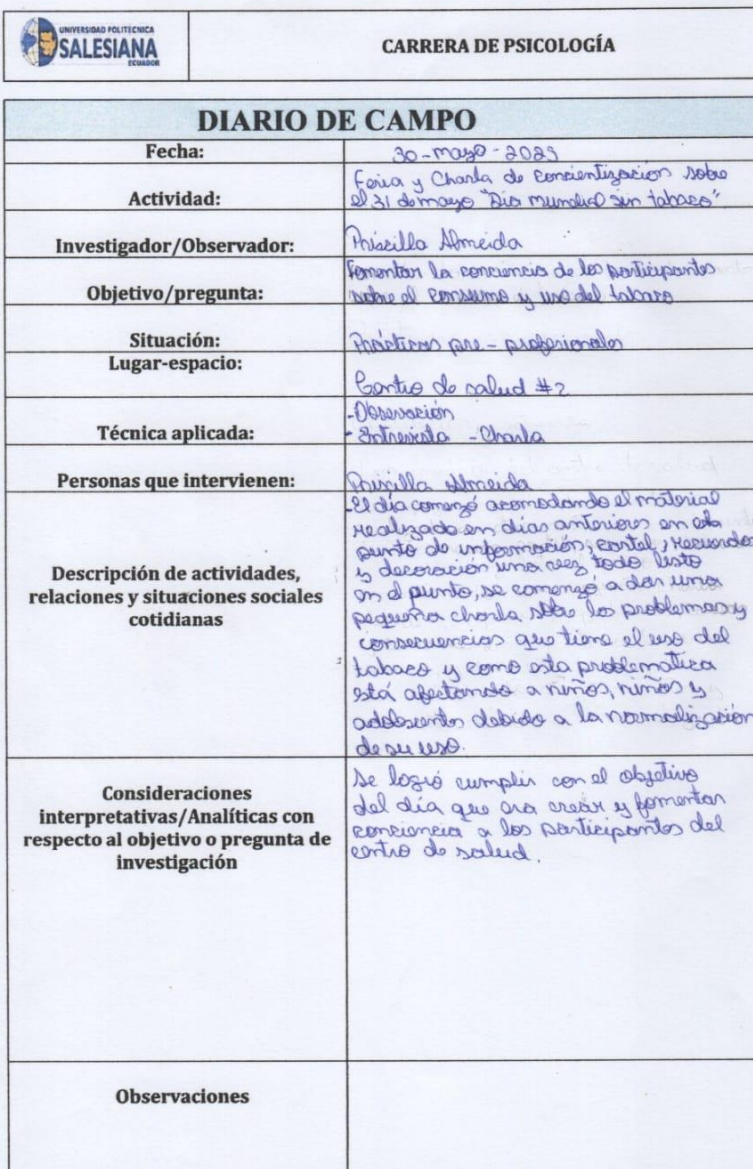 UNIVERSIDAD POLITÉCNICA
SALESIANA
ECUADOR
CARRERA DE PSICOLOGÍA
DIARIO DE CAMPO
Fecha: 30-mayo-2023
Actividad: Feria y Charla de concientización sobre
el 31 de mayo "Día mundial sin tabaco"
Investigador/Observador: Priscilla Almeida
Objetivo/pregunta: Fomentar la conciencia de los participantes
sobre el consumo y uso del tabaco
Situación: Prácticas pre-profesionales
Lugar-espacio: Centro de salud #2
Técnica aplicada: -Observación
- Entrevista - Charla
Personas que intervienen: Priscilla Almeida
Descripción de actividades,
relaciones y situaciones sociales
cotidianas
-El día comenzó acomodando el material
realizado en días anteriores en el
punto de información, cartel, recuerdos
y decoración una vez todo listo
en el punto, se comenzó a dar una
pequeña charla sobre los problemas y
consecuencias que tiene el uso del
tabaco y como esta problematica
está afectando a niños, niñas y
adolescentes debido a la normalización
de su uso.
Consideraciones
interpretativas/Analíticas con
respecto al objetivo o pregunta de
investigación
Se logró cumplir con el objetivo
del día que era crear y fomentar
conciencia a los participantes del
centro de salud.
Observaciones